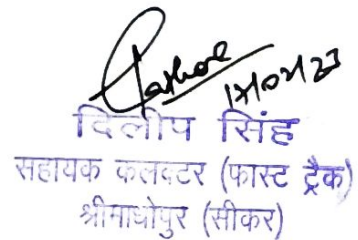 17/02/23
दिलीप सिंह
सहायक कलक्टर (फास्ट ट्रैक)
श्रीमाधोपुर (सीकर)